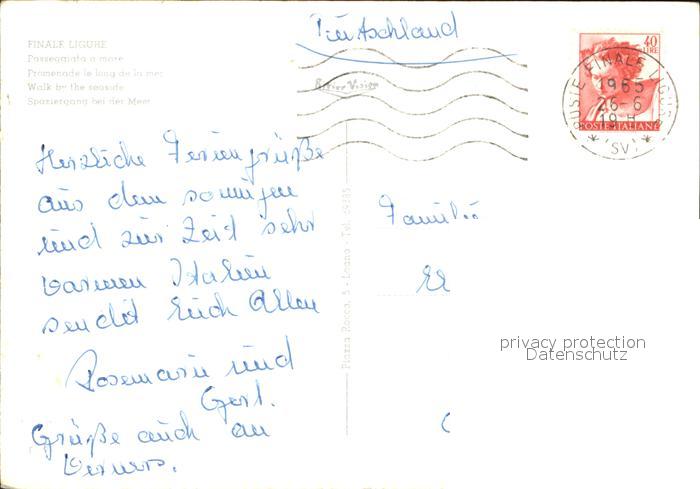 Deutschland
FINALE LIGURE
Passeggiata a mare
Promenade le long de la mer
Walk by the seaside
Spaziergang bei der Meer
40
LIRE
POSTE ITALIANE
POSTE FINALE LIGURE
1965
26-6
19-
(SV)
Herzliche Feriengrüße
aus dem sonnigen
und zur Zeit sehr
warmen Italien
sendet Euch Allen
Rosemarie und
Gert.
Grüße auch an
Werners.
Piazza Rocca, 5 - Loano - Tel. 69385
Familie
privacy protection
Datenschutz